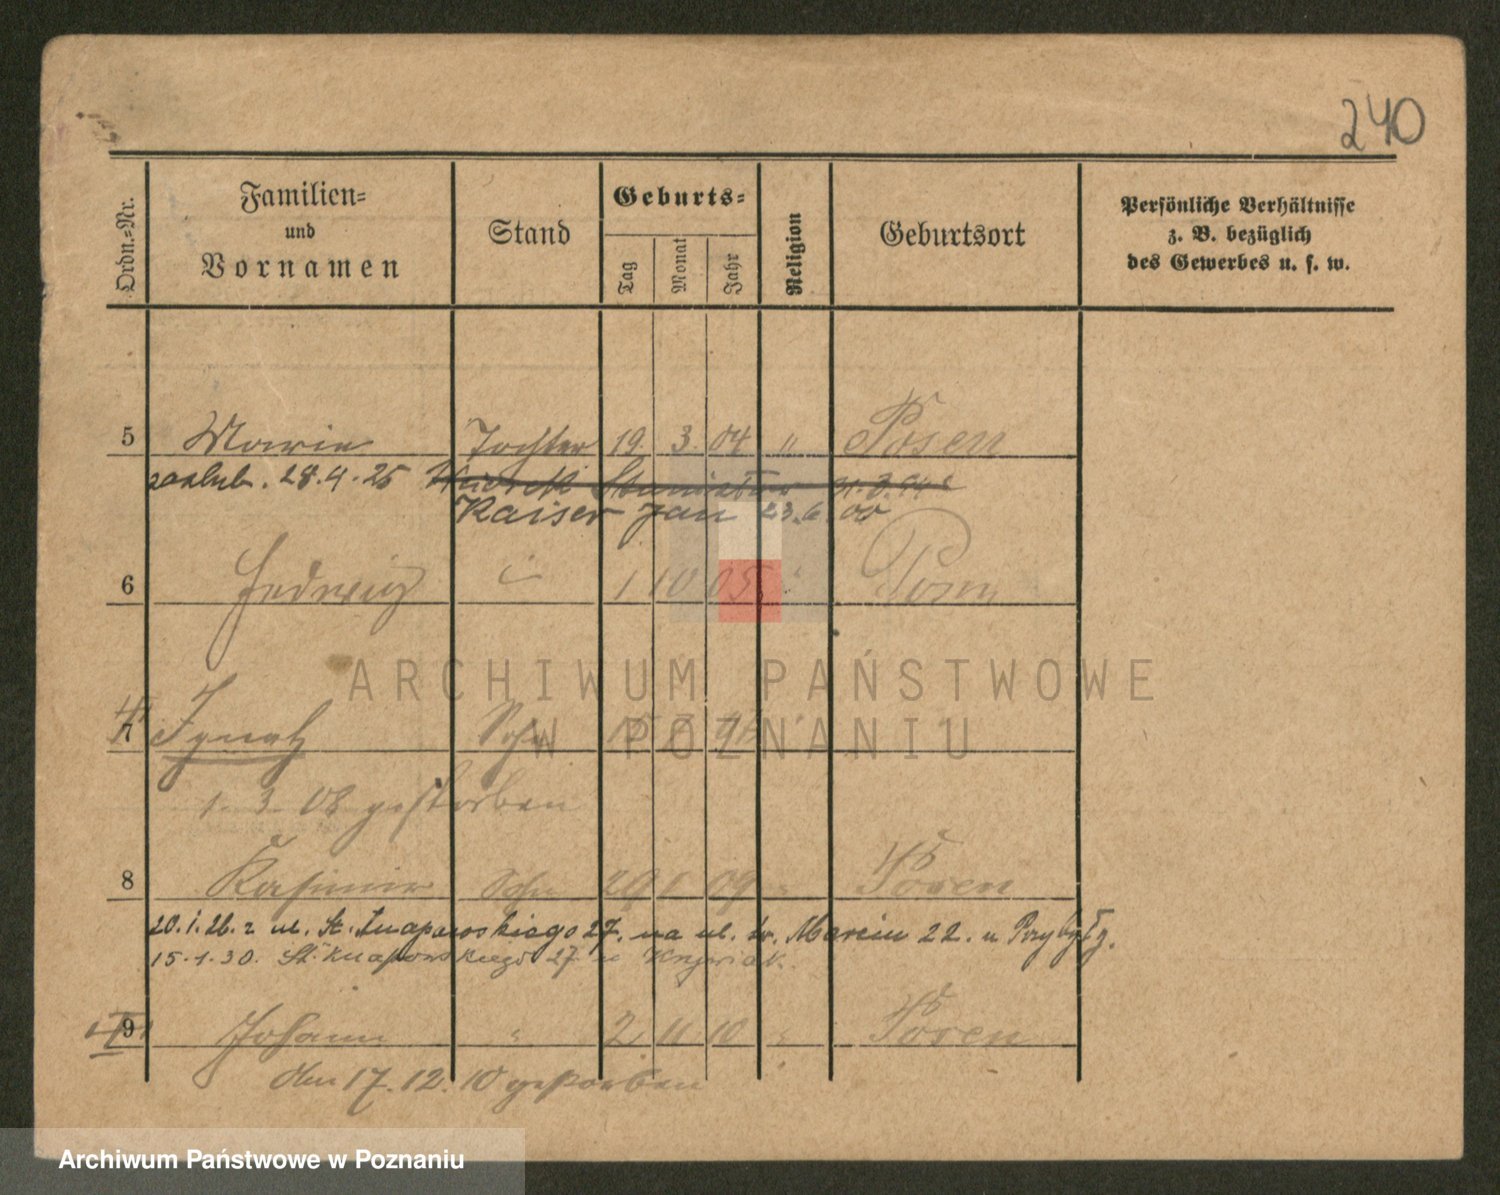 240
Ordn.-Nr.
Familien- und Vornamen
Stand
Geburts-
Tag Monat Jahr
Religion
Geburtsort
Persönliche Verhältnisse
z. B. bezüglich
des Gewerbes u. s. w.
5 Marie Tochter 19. 3. 04 " Posen
zaslub. 28.4.25 Stanisław
Kaiser Jan 23.6.00
6 Hedwig 1 10 05 Posen
7 Ignatz Sohn
1. 3. 08 gestorben
8 Kasimir Sohn 29 1 09 " Posen
20.1.26. z ul. St. Knapowskiego 27. na ul. św. Marcin 22. u Przybyłz.
15.1.30. St. Knapowskiego 27
9 Johann " 2 11 10 " Posen
den 17. 12. 10 gestorben
ARCHIWUM PAŃSTWOWE
W POZNANIU
Archiwum Państwowe w Poznaniu